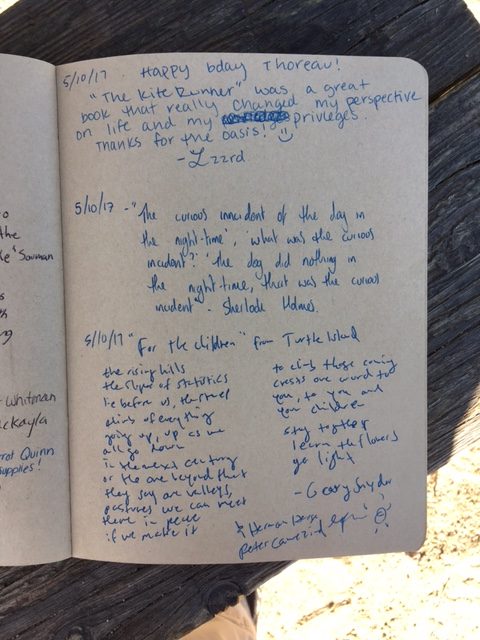 5/10/17. Happy bday Thoreau!
"The Kite Runner" was a great
book that really changed my perspective
on life and my privileges.
Thanks for the oasis!
- Lzzrd
5/10/17 - "The curious inncident of the day in
the night-time', 'what was the curious
incident?' 'the dog did nothing in
the night-time, that was the curious
incident - Sherlock Holmes.
5/10/17 "For the children" from Turtle Island
the rising hills
the slopes of statistics
lie before us, the steep
climb of everything
going up, up as we
all go down
in the next century
or the one beyond that
they say are valleys,
pastures we can meet
there in peace
if we make it
to climb these coming
crests one word to
you, to you and
your children
stay together
learn the flowers
go light
- Geary Snyder
Herman
Peter
o
the
Sawman
s
th
ng
Whitman
ckayla
rot Quinn
supplies!